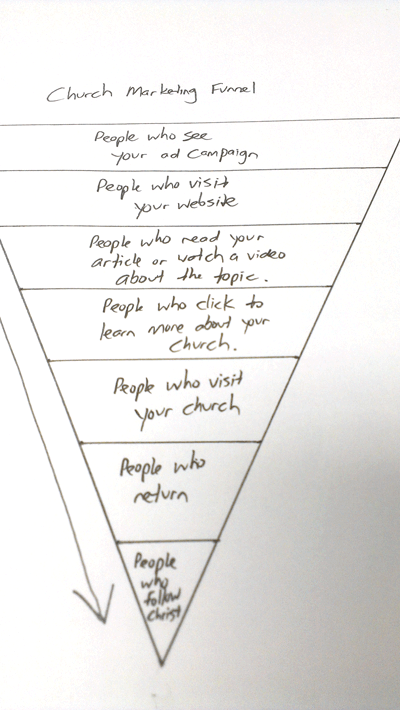 Church Marketing Funnel
People who see
your ad campaign
People who visit
your website
People who read your
article or watch a video
about the topic.
People who click to
learn more about your
church.
People who visit
your church
People who
return
People
who
follow
Christ